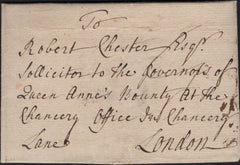 To
Robert Chester Esqr.
Sollicitor to the Governors of
Queen Anne's Bounty At the
Chancery Office In Chancery
Lane London